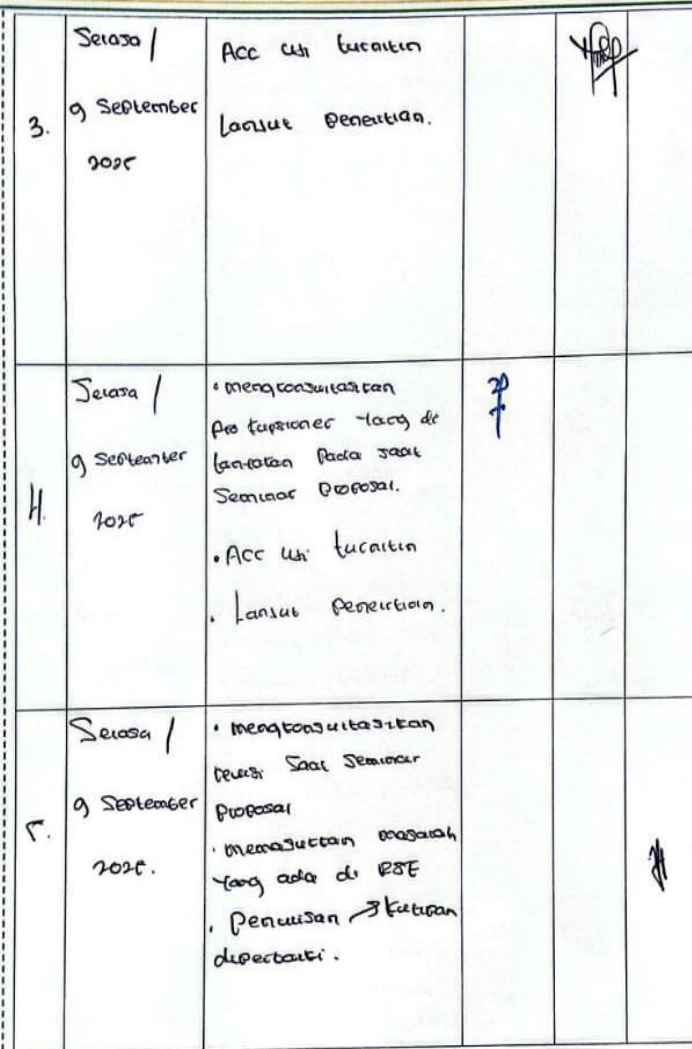 3.
Selasa /
9 September
2025
Acc uji turnitin
Lanjut Penelitian.
4.
Selasa /
9 September
2025
• mengkonsultasikan
kuesioner yang di
Pada saat
Seminar Proposal.
• Acc uji turnitin
• Lanjut Penelitian.
5.
Selasa /
9 September
2025.
• mengkonsultasikan
revisi Saat Seminar
Proposal
• memasukkan masalah
yang ada di RSE
• Penulisan kutipan
diperbaiki.